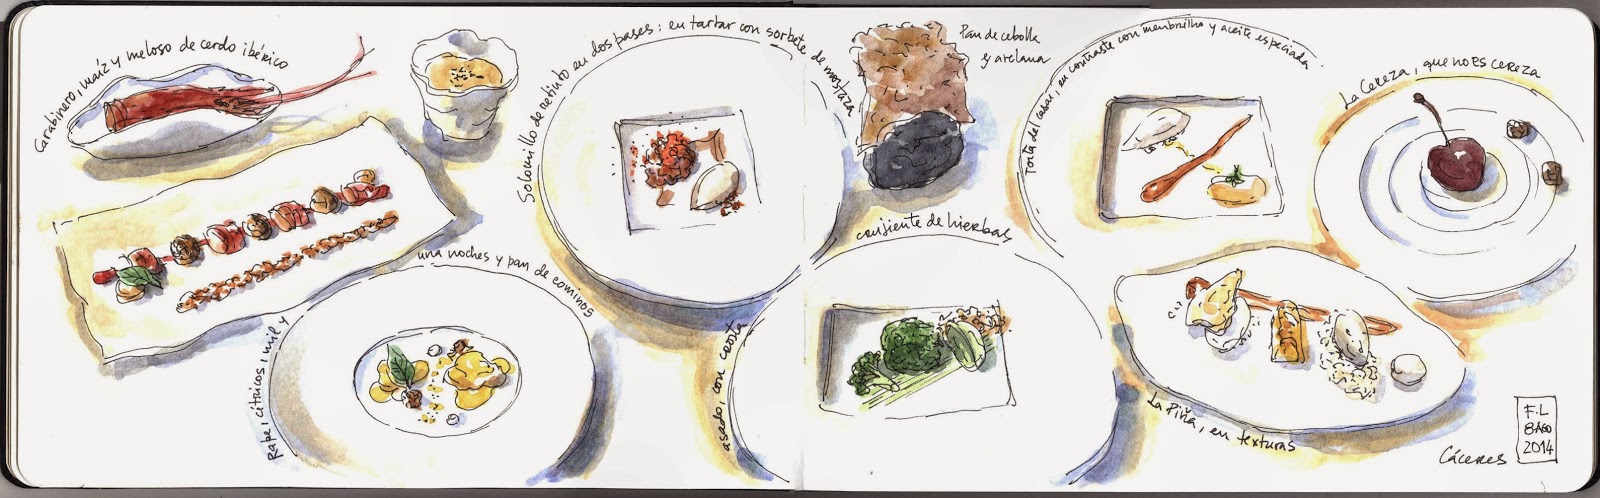 Carabinero, maíz y meloso de cerdo ibérico
Solomillo de retinto en dos pases: en tartar con sorbete de mostaza
Pan de cebolla
y avellana
Torta del casar, en contraste con membrillo y aceite especiado
La Cereza, que no es cereza
asado, con costra
crujiente de hierbas
Rape, cítricos, mil y
una noches y pan de cominos
La Piña, en texturas
Cáceres
F.L
8 AGO
2014